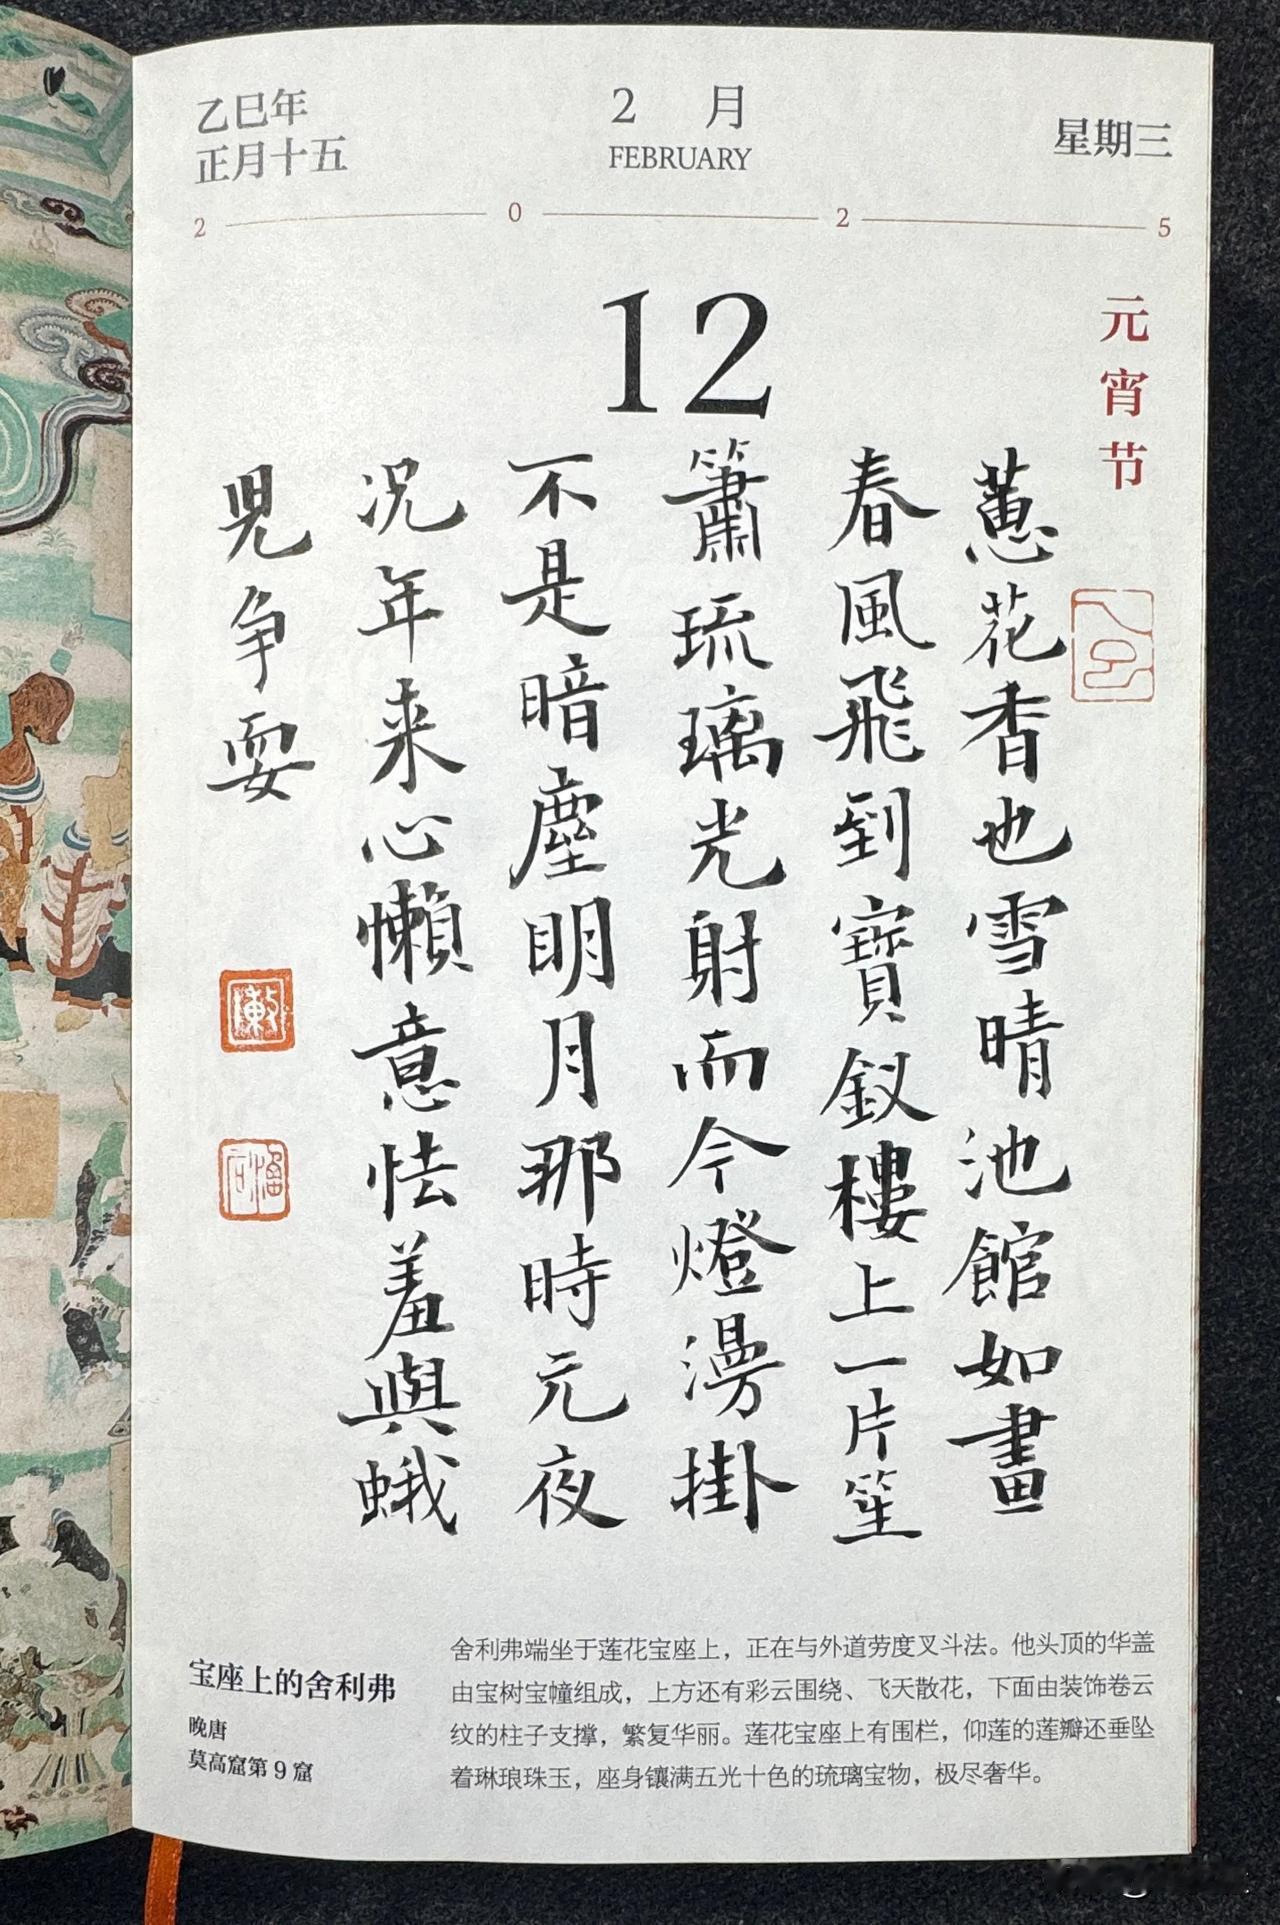 乙巳年
正月十五
2 月
FEBRUARY
星期三
2 0 2 5
12
元宵节
蕙花香也雪晴池館如畫
春風飛到寶釵樓上一片笙
簫琉璃光射而今燈漫掛
不是暗塵明月那時元夜
况年来心懶意怯羞與蛾
児争耍
宝座上的舍利弗
晚唐
莫高窟第 9 窟
舍利弗端坐于莲花宝座上，正在与外道劳度叉斗法。他头顶的华盖
由宝树宝幢组成，上方还有彩云围绕、飞天散花，下面由装饰卷云
纹的柱子支撑，繁复华丽。莲花宝座上有围栏，仰莲的莲瓣还垂坠
着琳琅珠玉，座身镶满五光十色的琉璃宝物，极尽奢华。